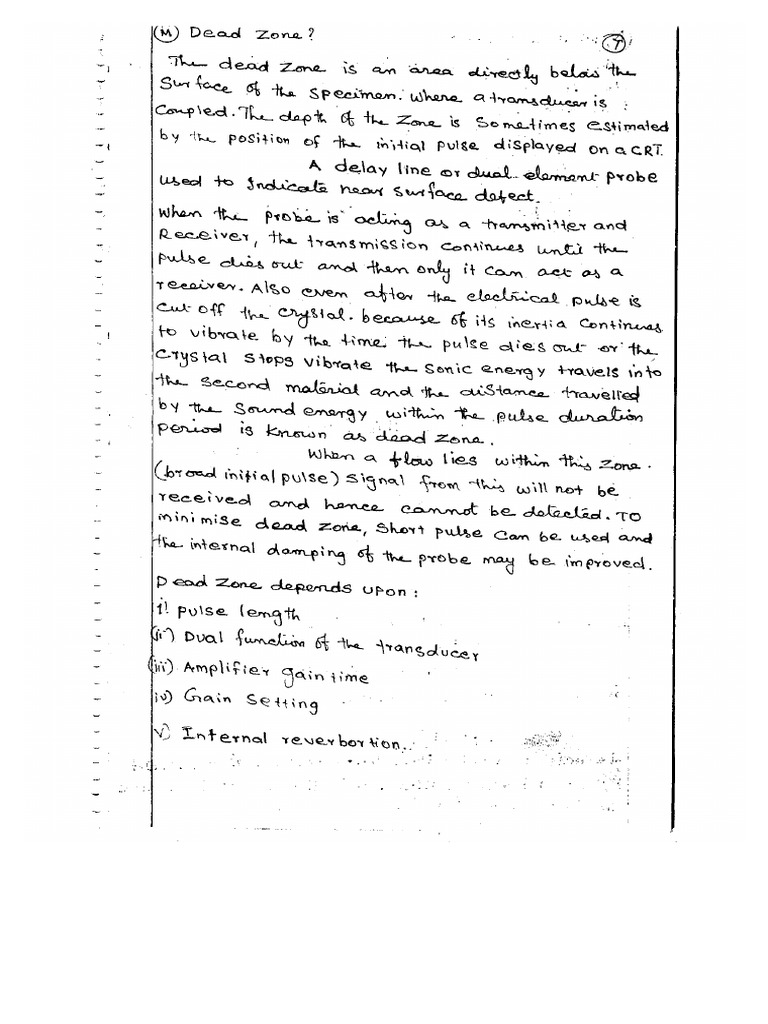 (M) Dead Zone?
7
The dead zone is an area directly below the
Surface of the specimen. Where a transducer is
Coupled. The depth of the Zone is Sometimes estimated
by the position of the initial pulse displayed on a CRT.
A delay line or dual element probe
used to Indicate near surface defect.
When the probe is acting as a transmitter and
Receiver, the transmission continues until the
pulse dies out and then only it can act as a
receiver. Also even after the electrical pulse is
cut off the crystal. because of its inertia continues
to vibrate by the time. the pulse dies out or the
Crystal Stops vibrate the sonic energy travels into
the second material and the distance travelled
by the Sound energy within the pulse duration
period is known as dead zone.
When a flow lies within this Zone.
(broad initial pulse) signal from this will not be
received and hence cannot be detected. TO
minimise dead zone, short pulse can be used and
the internal damping of the probe may be improved.
Dead Zone depends upon:
i) pulse length
(ii) Dual function of the transducer
(iii) Amplifier gain time
iv) Gain Setting
v) Internal reverbortion.